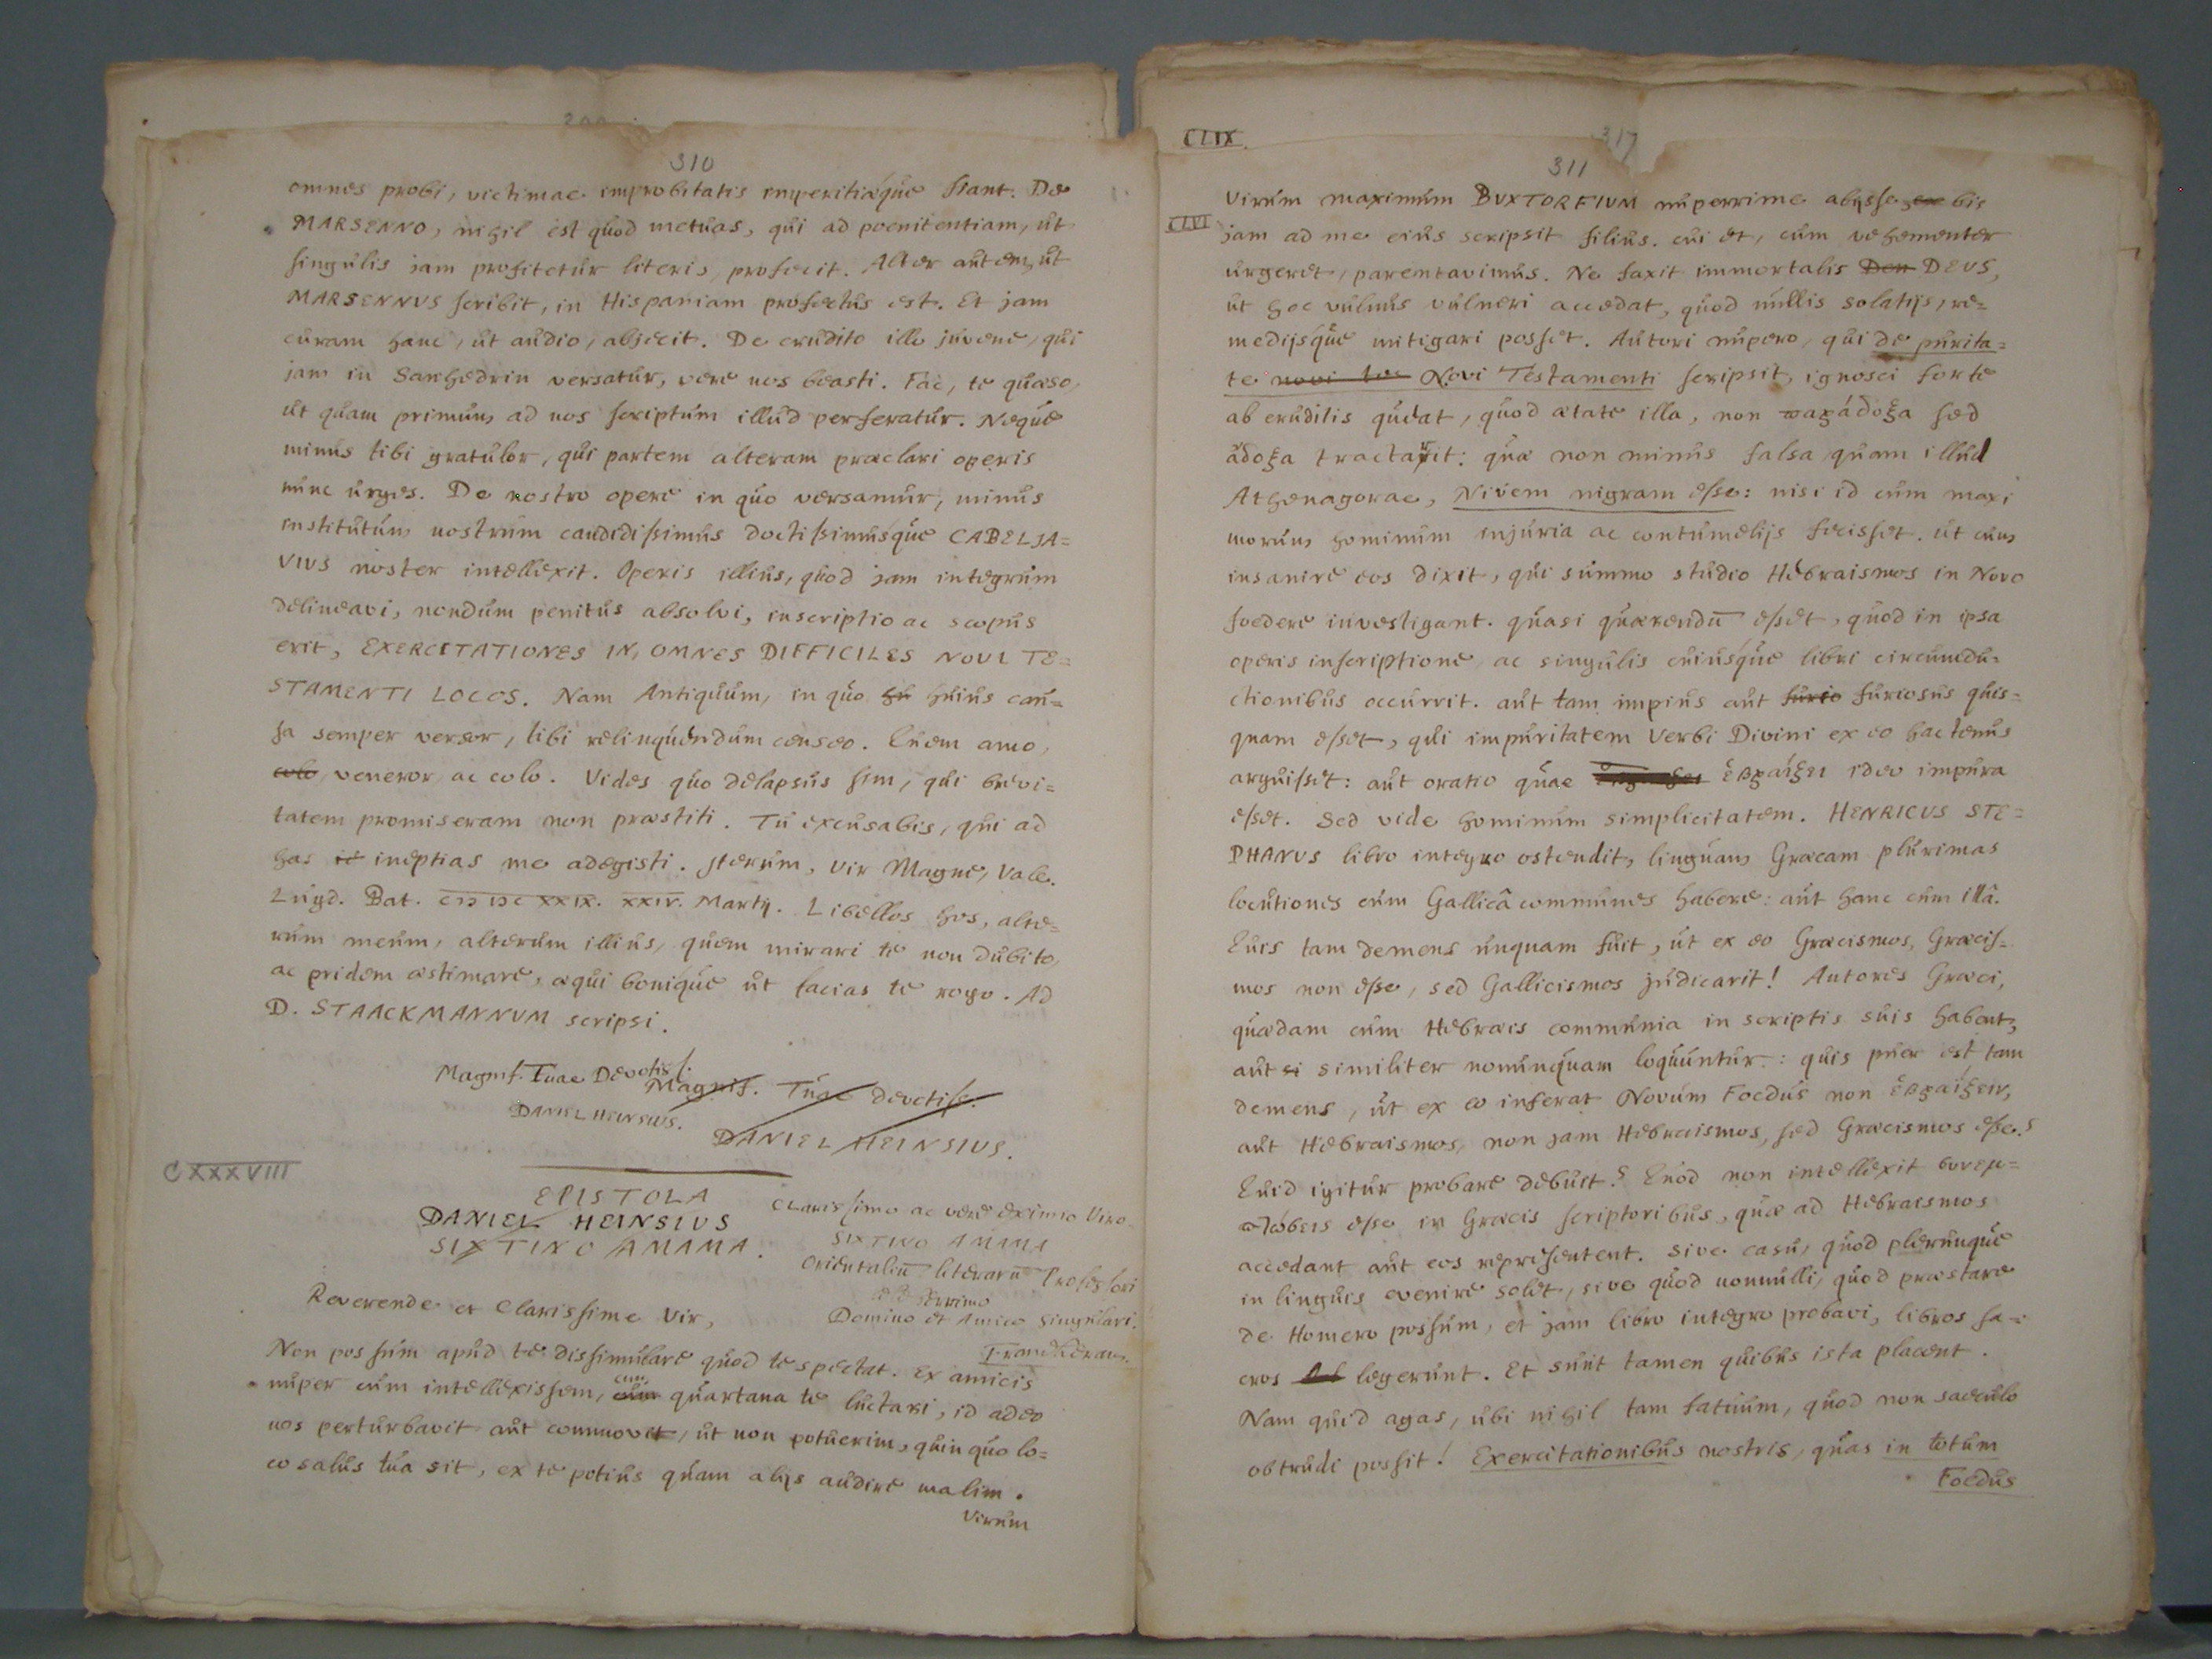 310
omnes probi, victimae improbitatis imperitiæque fiant. De
MARSENNO, nihil est quod metuas, qui ad poenitentiam, ut
singulis jam profitetur literis, profecit. Alter autem, ut
MARSENNUS scribit, in Hispaniam profectus est. Et jam
curam hanc, ut audio, abjecit. De erudito illo juvene, qui
jam in Sanhedrin versatur, vere nos beasti. Fac, te quæso,
ut quam primum ad nos scriptum illud perferatur. Neque
minus tibi gratulor, qui partem alteram præclari operis
nunc urges. De nostro opere in quo versamur, minus
institutum nostrum candidissimus doctissimusque CABELJA=
VIUS noster intellexit. Operis illius, quod jam integrum
delineavi, nondum penitus absolvi, inscriptio ac scopus
erit, EXERCITATIONES IN OMNES DIFFICILES NOVI TE=
STAMENTI LOCOS. Nam Antiquum, in quo hu huius cau=
sa semper versor, tibi relinquendum censeo. Quem amo,
colo, veneror ac colo. Vides quo delapsus sim, qui brevi=
tatem promiseram non præstiti. Tu excusabis, qui ad
has ineptias me adegisti. Iterum, Vir Magne, Vale.
Lugd. Bat. CIↃ IↃC XXIX. XXIV. Martij. Libellos hos, alte=
rum meum, alterum illius, quem mirari te non dubito,
ac pridem æstimare, æqui bonique ut facias te rogo. Ad
D. STAACKMANNUM scripsi.
Magnif. Tuae Devotiss.
Magnif. Tuae devotiss.
DANIEL HEINSIUS.
DANIEL HEINSIUS.
CXXXVIII
EPISTOLA
DANIEL HEINSIUS
SIXTINO AMAMA.
Clarissimo ac vere eximio Viro
SIXTINO AMAMA
Orientaliũ literarũ Professori
Domino et Amico singulari.
Franekeram.
Reverende et Clarissime Vir,
Non possum apud te dissimulare quod te spectat. Ex amicis
nuper cum intellexissem, cum cum quartana te luctari, id adeo
nos perturbavit aut commovit, ut non potuerim, quin quo lo=
co salus tua sit, ex te potius quam alijs audire malim.
Virum
CLIX.
317
311
CLVI
Virum maximum BUXTORFIUM nuperrime abijsse, ex bis
jam ad me eius scripsit filius. cui et, cum vehementer
urgeret, parentavimus. Ne faxit immortalis Deu DEUS,
ut hoc vulnus vulneri accedat, quod nullis solatijs, re=
medijsque mitigari posset. Autori nupero, qui de purita=
te novi tes Novi Testamenti scripsit, ignosci forte
ab eruditis queat, quod ætate illa, non παράδοξα sed
ἄδοξα tractarit: quæ non minus falsa quam illud
Athenagorae, Nivem nigram esse: nisi id cum maxi
morum hominum injuria ac contumelijs fecisset. ut cum
insanire eos dixit, qui summo studio Hebraismos in Novo
foedere investigant. quasi quærendũ esset, quod in ipsa
operis inscriptione, ac singulis cuiusque libri circumdu=
ctionibus occurrit. aut tam impius aut furio furiosus quis=
quam esset, qui impuritatem Verbi Divini ex eo hactenus
arguisset: aut oratio quae ἑβραΐζει ideo impura
esset. Sed vide hominum simplicitatem. HENRICUS STE=
PHANUS libro integro ostendit, linguam Græcam plurimas
locutiones cum Gallicâ communes habere: aut hanc cum illâ.
Quis tam demens unquam fuit, ut ex eo Græcismos, Græcis=
mos non esse, sed Gallicismos judicarit! Autores Græci,
quædam cum Hebræis communia in scriptis suis habent,
aut si similiter nonunquam loquuntur: quis puer est tam
demens, ut ex eo inferat Novum Foedus non ἑβραΐζειν,
aut Hebraismos, non jam Hebraismos, sed Græcismos esse?
Quid igitur probare debuit? Quod non intellexit συνεμ=
πτώσεις esse in Græcis scriptoribus, quæ ad Hebraismos
accedant aut eos repræsentent. sive casu, quod plerunque
in linguis evenire solet, sive quod nonnulli, quod præstare
de Homero possum, et jam libro integro probavi, libros sa=
cros legerunt. Et sunt tamen quibus ista placent.
Nam quid agas, ubi nihil tam fatuum, quod non saeculo
obtrudi possit! Exercitationibus nostris, quas in totum
Foedus